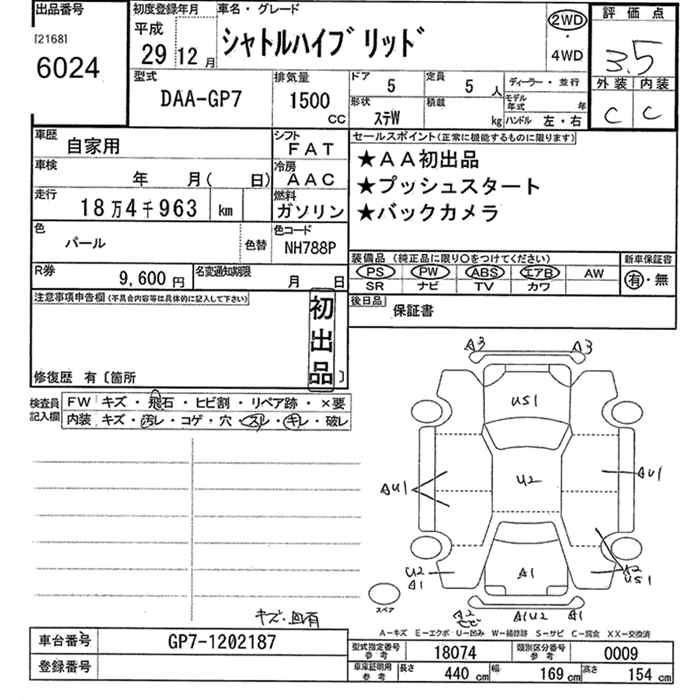 出品番号
[2168]
6024
初度登録年月
平成
29 12 月
車名・グレード
シャトルハイブリッド
2WD
・
4WD
評価点
3.5
外装 内装
C C
型式
DAA-GP7
排気量
1500 CC
ドア 5
定員 5 人
形状 ステW
積載 kg
ディーラー・並行
モデル年式 年
ハンドル 左・右
車歴 自家用
シフト FAT
車検 年 月( 日)
冷房 AAC
走行 18万4千963 km
燃料 ガソリン
色 パール
色替
色コード NH788P
R券 9,600円
名変通知期限 月 日
セールスポイント(正常に機能するものに限ります)
★AA初出品
★プッシュスタート
★バックカメラ
装備品 (純正品に限り○をつけてください)
PS PW ABS エアB AW
SR ナビ TV カワ
新車保証書
有・無
後日品 保証書
注意事項申告欄(不具合内容等は具体的に記入して下さい)
初出品
修復歴 有〔箇所 〕
検査員記入欄
FW キズ・飛石・ヒビ割・リペア跡・×要
内装 キズ・汚レ・コゲ・穴・スレ・キレ・破レ
A3 A3
US1
AU1 U2 AU1
U2 A1
A1
A2 US1
スペア
A2 A1U2 A1
A−キズ E−エクボ U−凹み W−補修跡 S−サビ C−腐食 XX−交換済
車台番号 GP7-1202187
登録番号
型式指定番号 参考 18074
類別区分番号 参考 0009
車庫証明用 参考 長さ 440 cm 幅 169 cm 高さ 154 cm